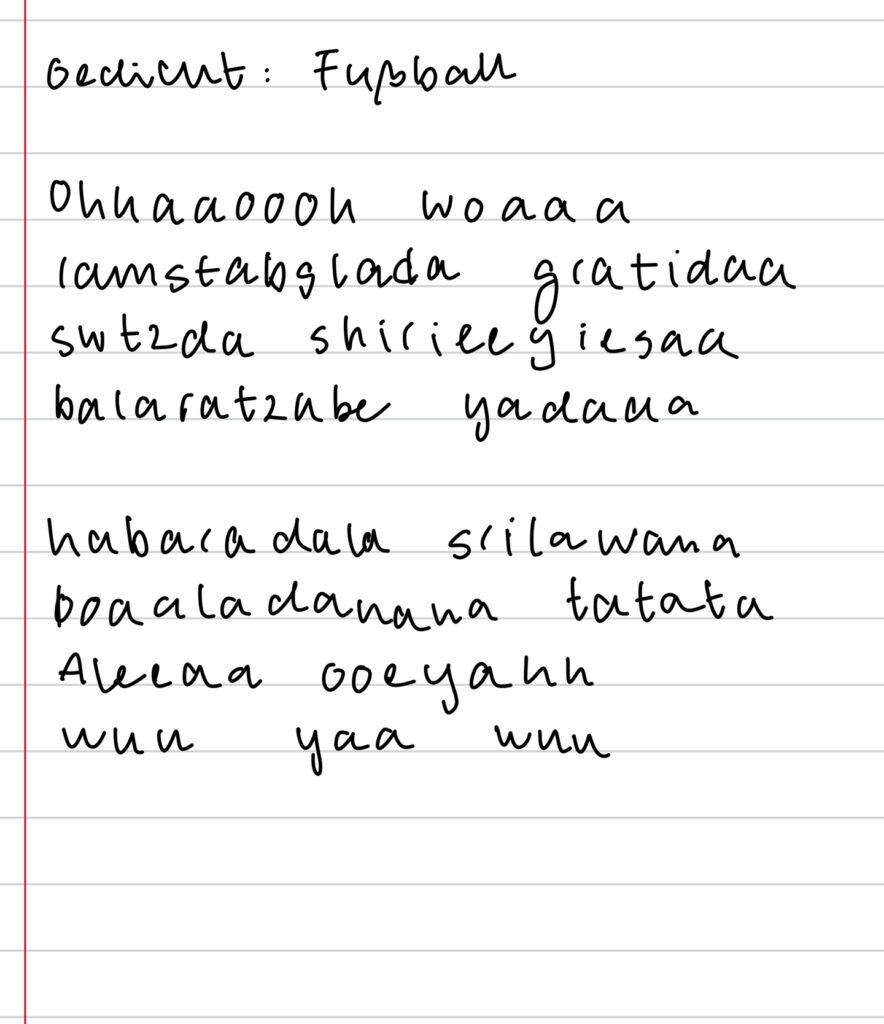 Gedicht: Fußball
Ohhaaoooh woaaa
lamstabglada gratidaa
swtzda shirieegiesaa
balaratzabe yadaua
habaradala srilawana
boaaladanana tatata
Aleeaa ooeyahh
wuu yaa wuu